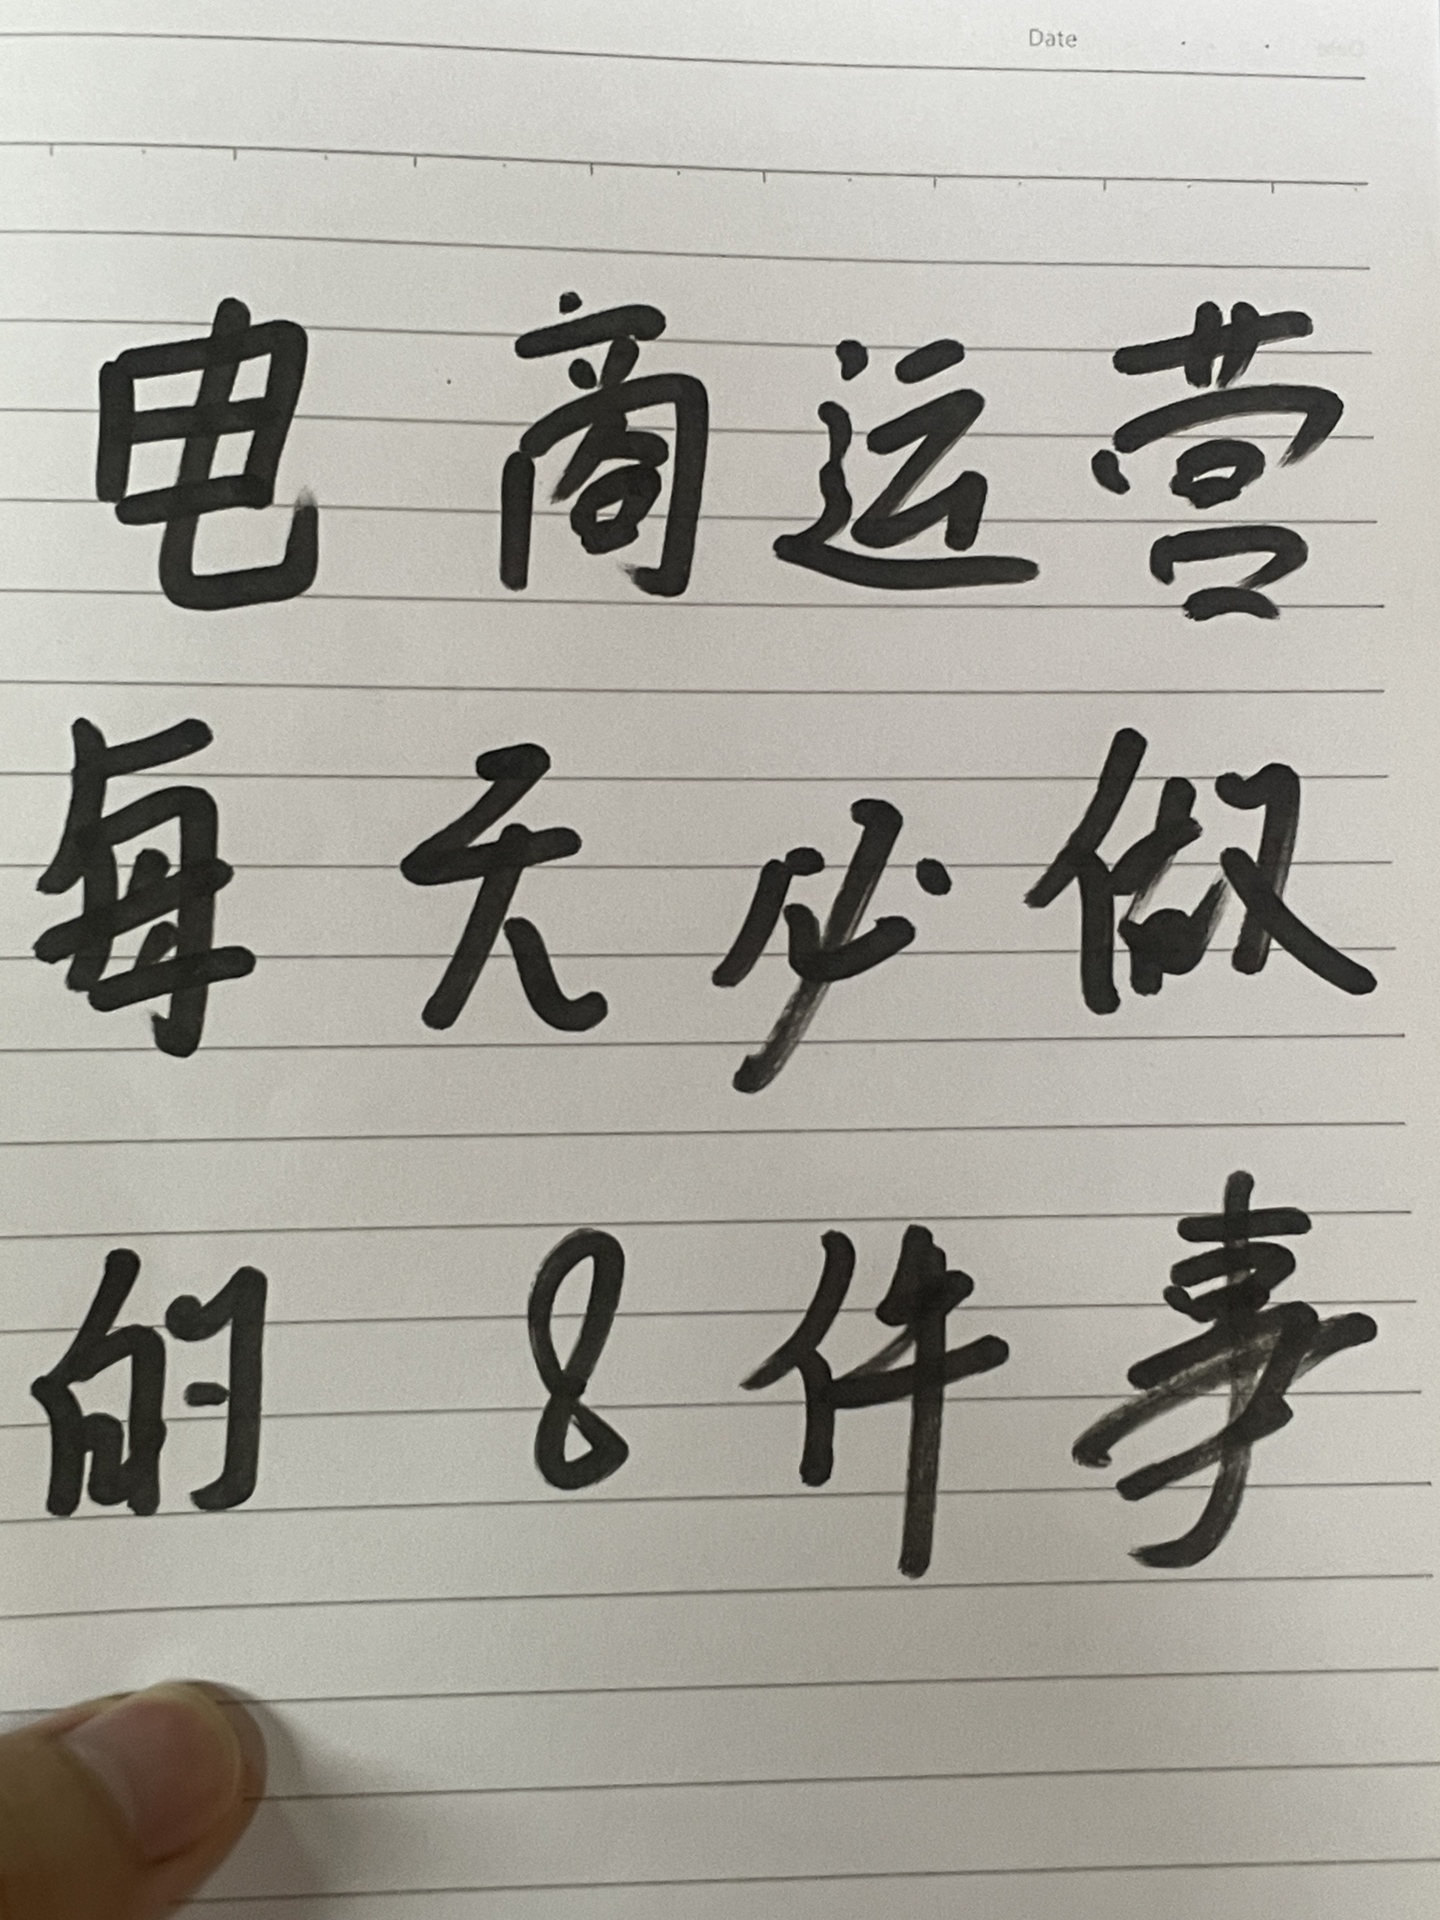 Date
电商运营
每天必做
的8件事